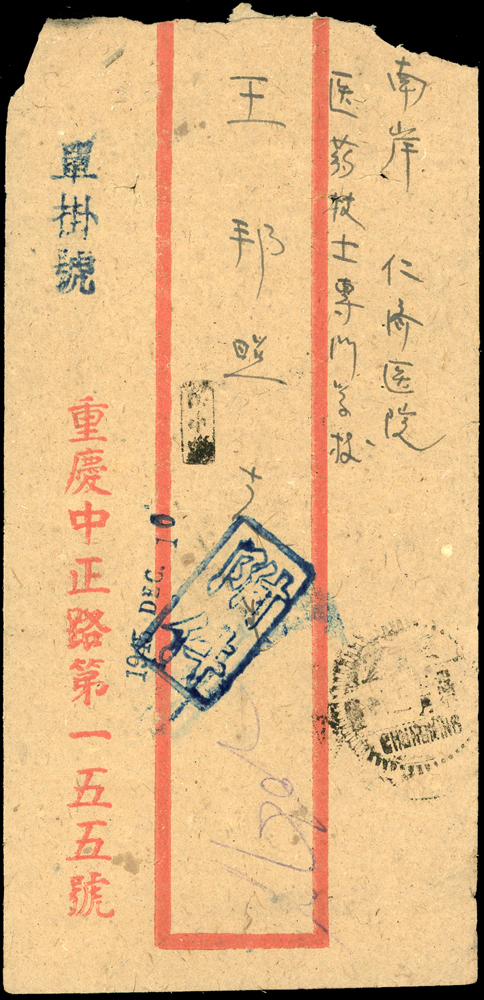 南岸 仁济医院
医葯技士專門学校
王邦昭
附件
1945 DEC. 10
CHUNGKING
單掛號
重慶中正路第一五五號